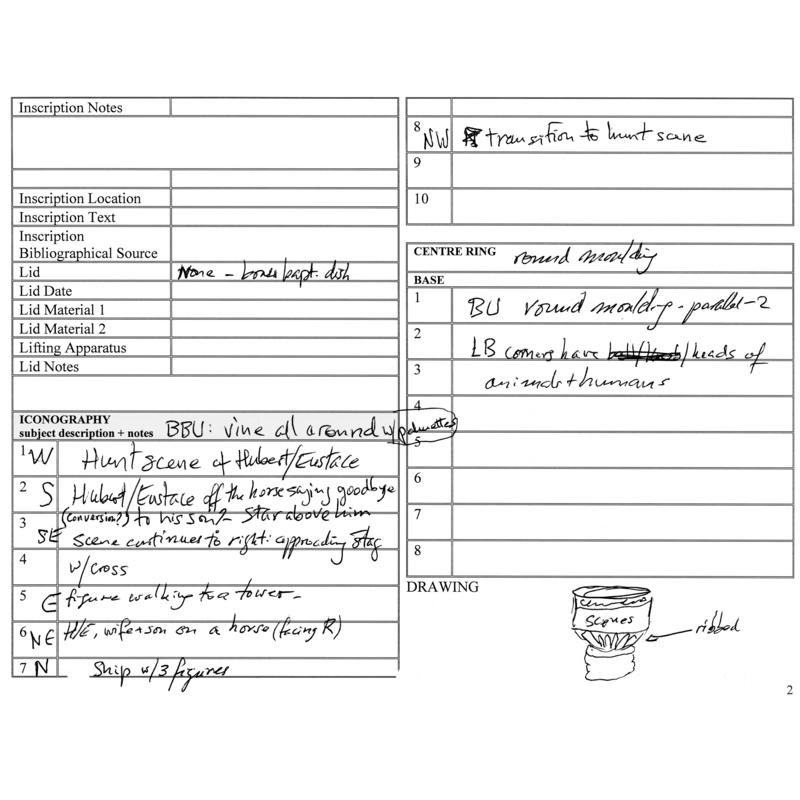 Inscription Notes
Inscription Location
Inscription Text
Inscription
Bibliographical Source
Lid None - bapt. dish
Lid Date
Lid Material 1
Lid Material 2
Lifting Apparatus
Lid Notes
ICONOGRAPHY
subject description + notes BBU: vine all around w/palmettes
1 W Hunt scene of Hubert/Eustace
2 S Hubert/Eustace off the horse saying goodbye
(conversion?) to his son? - Star above him
3 SE Scene continues to right: approading stag
4 w/cross
5 E figure walking to a tower -
6 NE H/E, wife+son on a horse (facing R)
7 N Ship w/3 figures
8 NW transition to hunt scene
9
10
CENTRE RING round moulding
BASE
1 BU round moulding - parallel - 2
2 LB corners have /heads of
3 animals + humans
4
5
6
7
8
DRAWING
scenes
ribbed
2